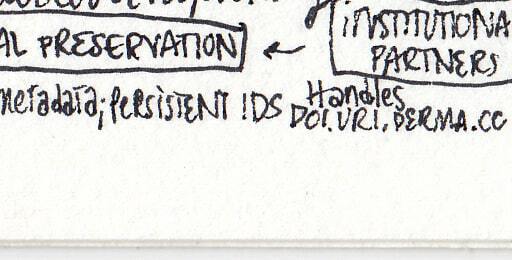 AL PRESERVATION ← INSTITUTIONA
PARTNERS
metadata; PERSISTENT IDS Handles
DOI.URI.PERMA.CC